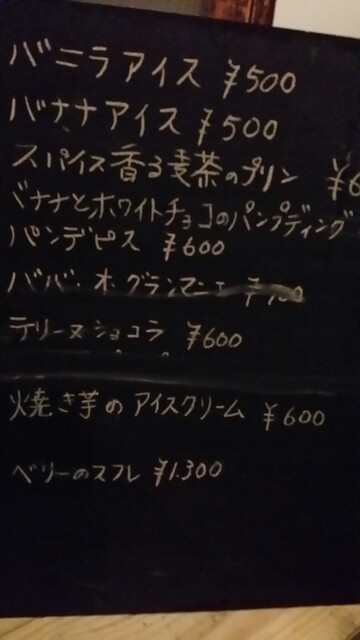 バニラアイス ¥500
バナナアイス ¥500
スパイス香る麦茶のプリン ¥6
バナナとホワイトチョコのパンプディング
パンデピス ¥600
ババ・オ・グランマニエ
テリーヌショコラ ¥600
焼き芋のアイスクリーム ¥600
ベリーのスフレ ¥1.300